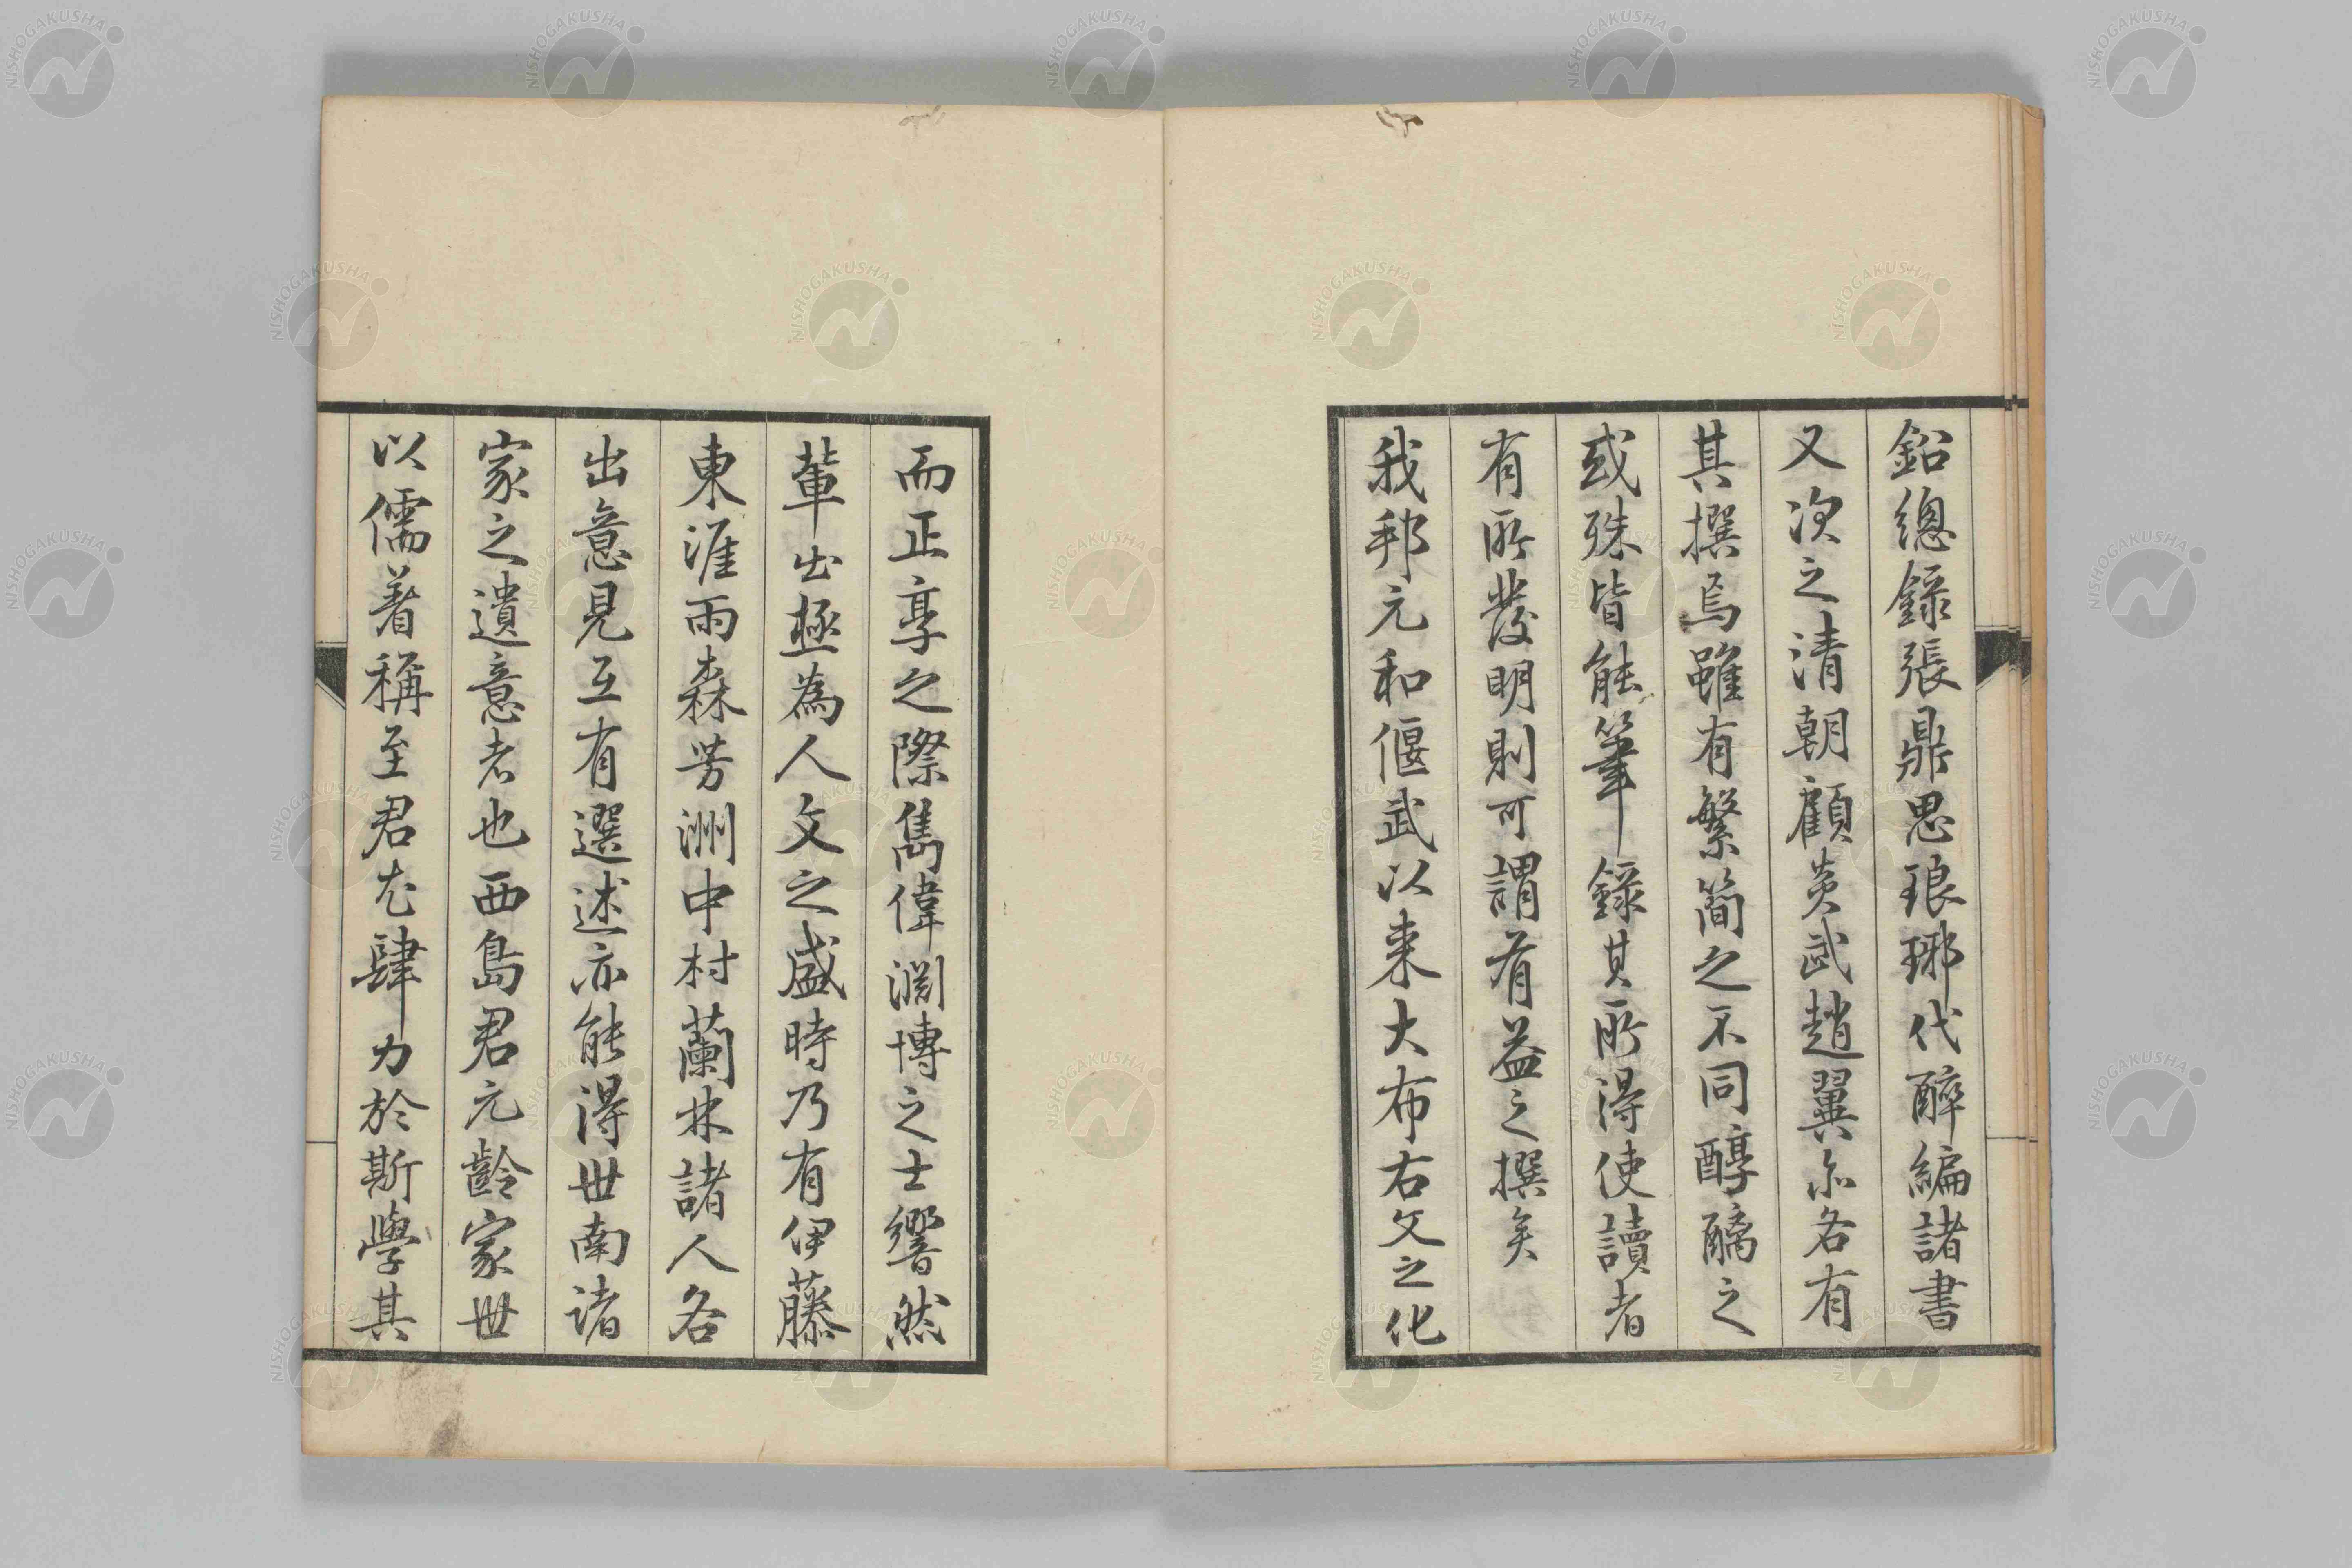 鉛總錄張鼎思琅琊代醉編諸書
又次之清朝顧炎武趙翼亦各有
其撰焉雖有繁簡之不同醇醨之
或殊皆能筆錄其所得使讀者
有所發明則可謂有益之撰矣
我邦元和偃武以來大布右文之化
而正享之際雋偉淵博之士響然
輩出極為人文之盛時乃有伊藤
東涯雨森芳洲中村蘭林諸人各
出意見互有選述亦能得世南諸
家之遺意者也西島君元齡家世
以儒著稱至君尤肆力於斯學其
NISHOGAKUSHA